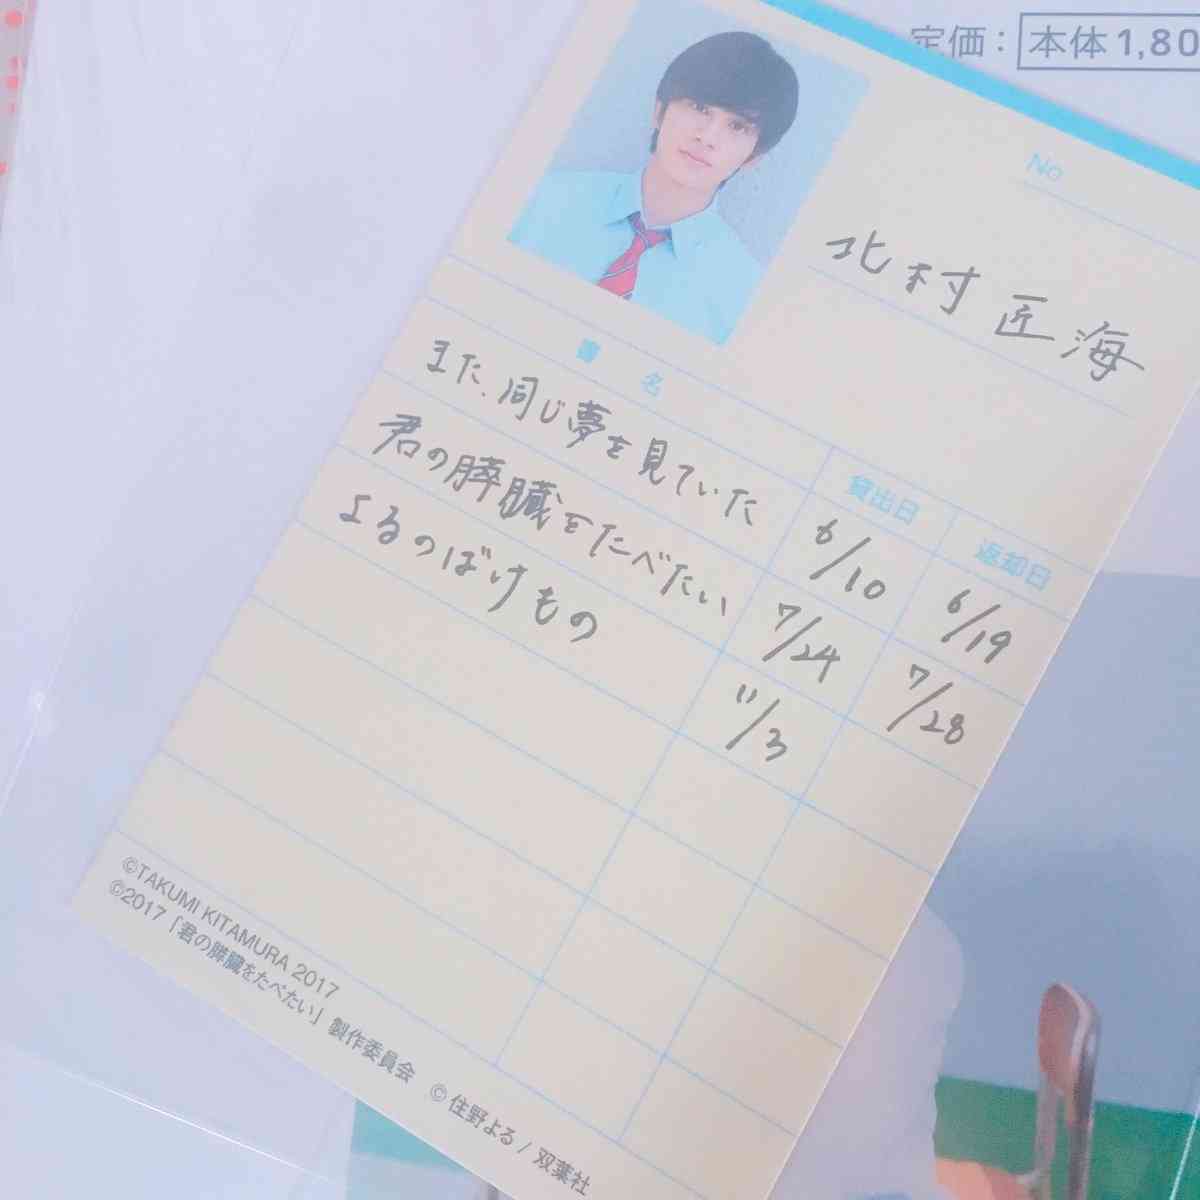 定価：本体1,80
No
北村匠海
書名 貸出日 返却日
また、同じ夢を見ていた 6/10 6/19
君の膵臓をたべたい 7/24 7/28
よるのばけもの 11/3
©TAKUMI KITAMURA 2017
©2017「君の膵臓をたべたい」製作委員会 ©住野よる/双葉社